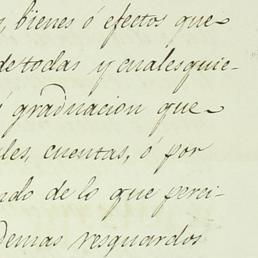 , bienes ó efectos que
de todas y cualesquie-
graduacion que
les, cuentas, ó por
ndo de lo que perci-
demas resguardos